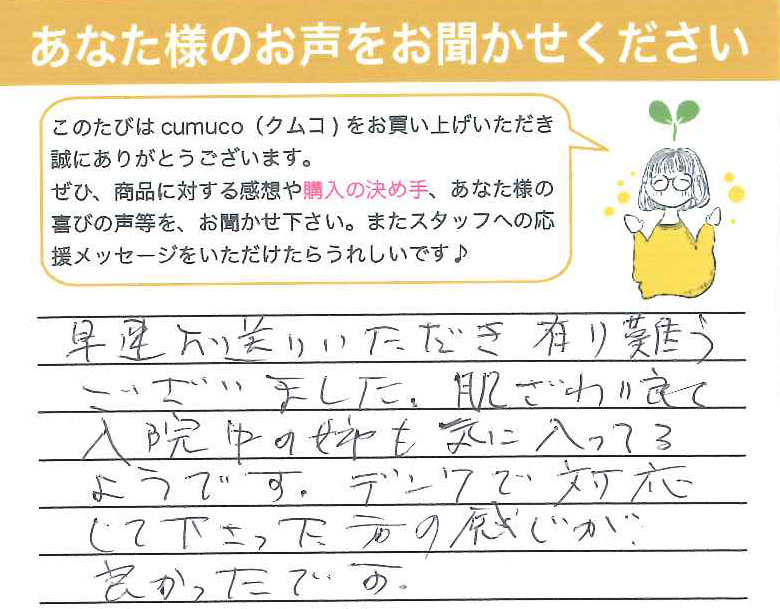 あなた様のお声をお聞かせください
このたびは cumuco（クムコ）をお買い上げいただき
誠にありがとうございます。
ぜひ、商品に対する感想や購入の決め手、あなた様の
喜びの声等を、お聞かせ下さい。またスタッフへの応
援メッセージをいただけたらうれしいです♪
早速お送りいただき有り難う
ございました。肌ざわり良く
入院中の姉も気に入ってる
ようです。デンワで対応
して下さった方の感じが
良かったです。